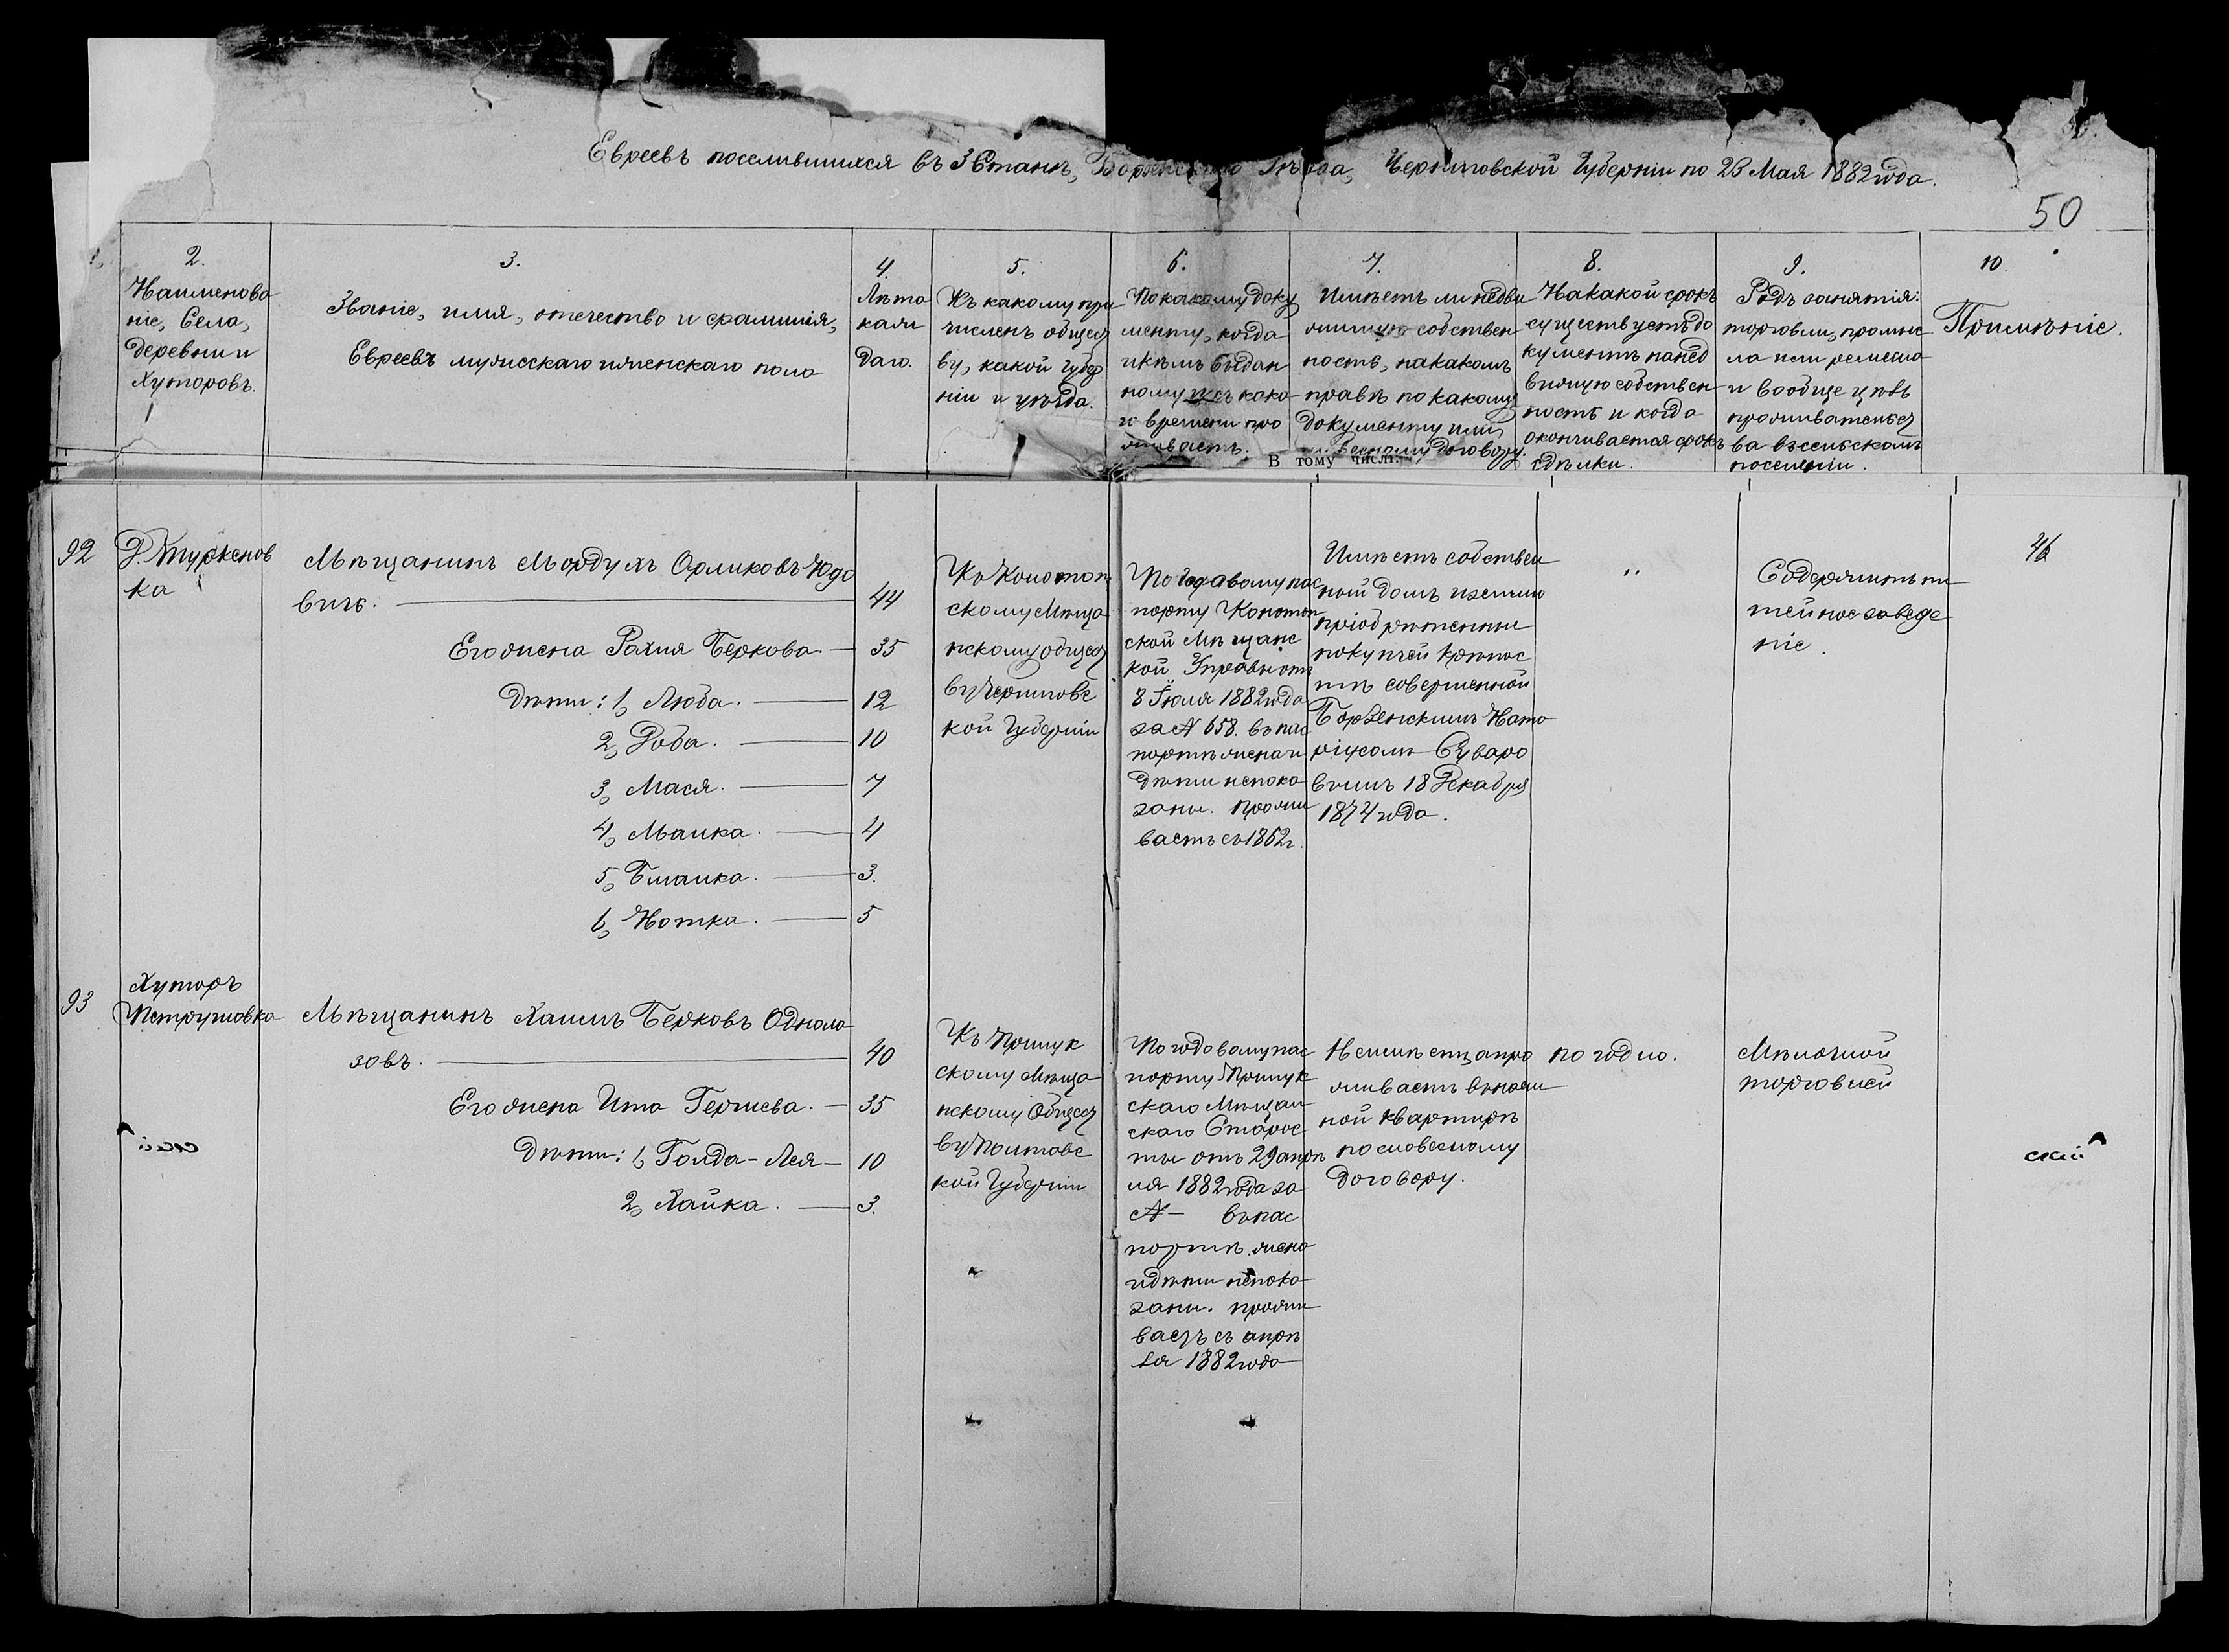 Евреевъ поселившихся въ 3 Станѣ, Борзенскаго Уѣзда, Черниговской Губерніи по 23 Мая 1882 года.
50
2.
Наименова
ніе, Села,
деревни и
Хуторовъ.
3.
Званіе, имя, отчество и фамилія,
Евреевъ мужескаго и женскаго пола
4.
Лѣта
каж
даго.
5.
Къ какому при
численъ общест
ву, какой губер
ніи и уѣзда.
6.
По какому доку
менту, когда
и кѣмъ выдан
ному и съ како
го времени про
живаетъ.
7.
Имѣетъ ли недви
жимую собствен
ность, на какомъ
правѣ по какому
документу или
словесному договору.
8.
На какой срокъ
существуетъ до
кументъ на нед
вижную собствен
ность и когда
окончивается срокъ
сдѣлки.
9.
Родъ занятія:
торговли, промыс
ла или ремесла
и вообще цѣль
проживательст
ва въ сельскомъ
поселеніи.
10.
Примѣніе.
В тому числѣ
92
Д. Туркенов
ка
Мѣщанинъ Мордухъ Орликовъ Юдо
вичъ. 44
Его жена Рахля Беркова. 35
Дѣти: 1, Люба. 12
2, Доба. 10
3, Мася. 7
4, Малка. 4
5, Блюмка. 3.
6, Нотка. 5
Къ Конотоп
скому Мѣща
нскому общест
ву Черниговс
кой Губерніи
По годавому пас
порту Конотоп
ской Мѣщанс
кой Управы отъ
8 Іюля 1882 года
за № 658. въ пас
портѣ жена и
дѣти непока
заны. прожи
ваетъ съ 1862 г.
Имѣетъ собствен
ный домъ и землю
пріобрѣтенные
покупкой крѣпос
тъ совершенной
Борзенскимъ Нато
ріусомъ Суваро
вымъ 18 Декабря
1874 года.
"
Содержитъ пи
тейное заведе
ніе.
46
93
Хуторъ
Петрушовка
Мѣщанинъ Хаимъ Берковъ Одногла
зовъ. 40
Его жена Ита Гершева. 35
Дѣти: 1, Голда-Лея 10
2, Хайка. 3.
Къ Прилук
скому Мѣща
нскому Общест
ву Полтавс
кой Губерніи
По годовому пас
порту Прилук
скаго Мѣщан
скаго Старос
ты отъ 29 апрѣ
ля 1882 года за
№ — въ пас
портѣ жена
и дѣти непока
заны. прожи
ваетъ съ апрѣ
ля 1882 года
Неимѣетъ, а про
живаетъ въ наем
ной квартирѣ
по словесному
договору.
по годно.
Мѣлочной
торговлей